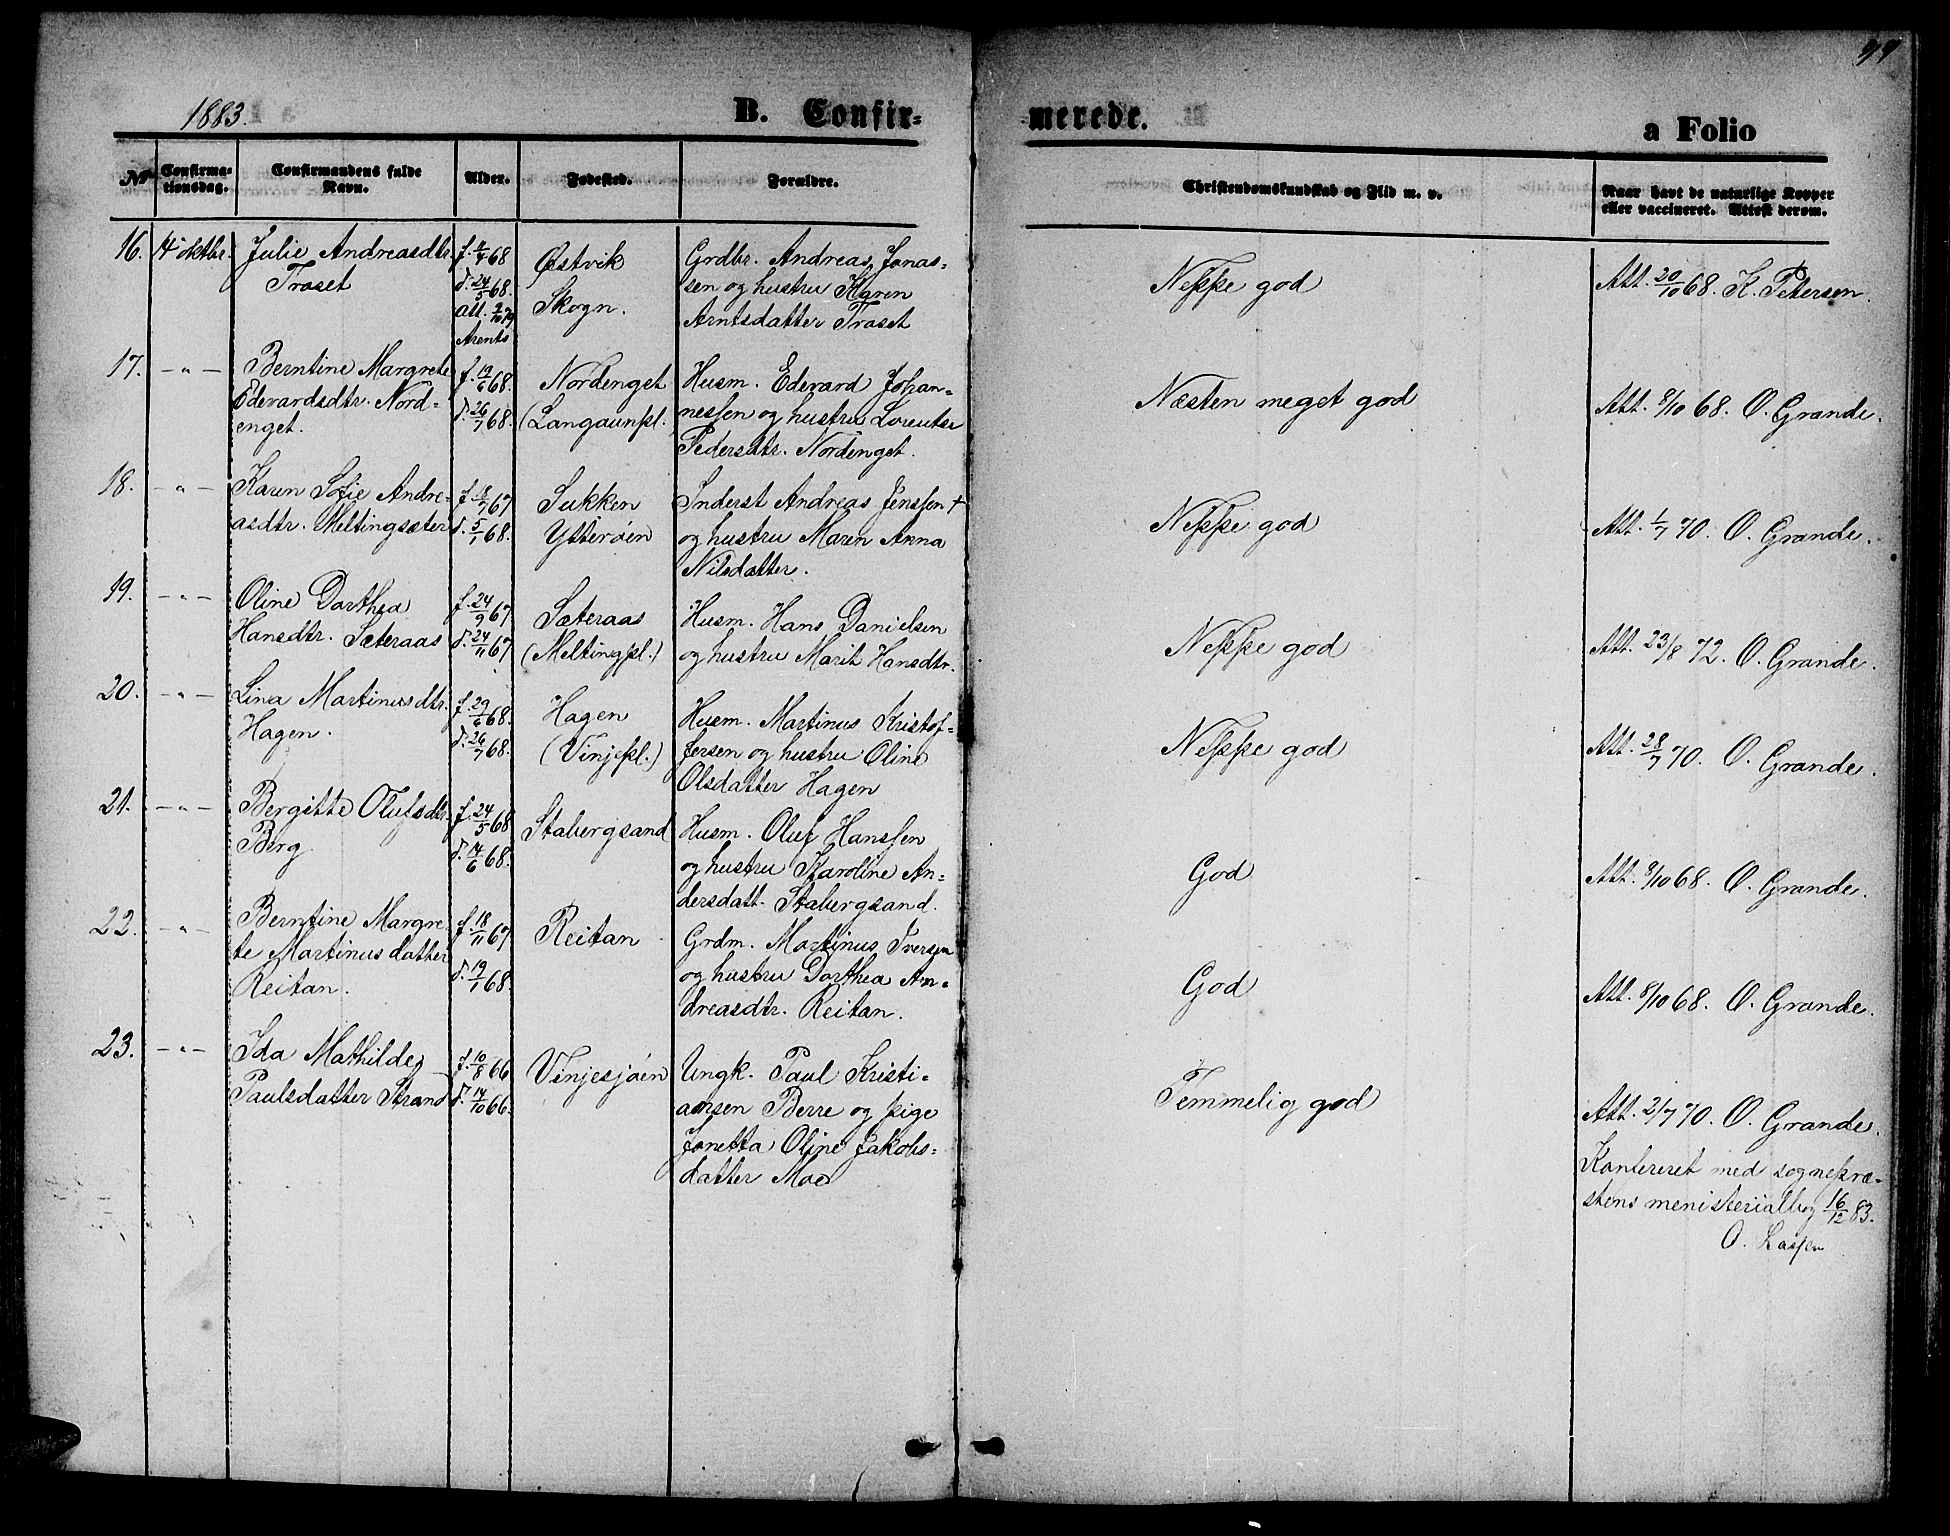 1883.
B. Confir-
merede.
a Folio
Nr
Confirma-
tionsdag.
Confirmandens fulde
Navn.
Alder.
Fødested.
Forældre.
Christendomskundskab og Flid m. v.
Naar havt de naturlige Kopper
eller vaccineret. Attest derom.
16. 14 oktbr. Julie Andreasdtr.
Traset
68
d. 24/5 68.
Att.
Østvik
Skogn.
Grdbr. Andreas Jonas-
sen og hustru Karen
Arntsdatter Traset
Neppe god
Att. 20/10 68. K. Petersen.
17. -"- Berntine Margrete
Edevardsdtr. Nord-
enget.
f. 19/6 68.
d. 26/7 68.
Nordenget
(Langaunpl.
Husm. Edevard Johan-
nessen og hustru Lorentse
Pedersdtr. Nordenget.
Næsten meget god
Att. 8/10 68. O. Grande.
18. -"- Karen Sofie Andre-
asdtr. Meltingsæter
f. 18/7 67
d. 5/1 68.
Sukken
Ytterøen
Inderst Andreas Jenssen +
og hustru Maren Anna
Nilsdatter.
Neppe god
Att. 1/7 70. O. Grande.
19. -"- Oline Dorthea
Hansdtr. Sæteraas
f. 24/9 67
d. 24/11 67
Sæteraas
(Meltingpl.)
Husm. Hans Danielsen
og hustru Marit Hansdtr.
Neppe god
Att. 23/8 72. O. Grande.
20. -"- Lina Martinusdtr.
Hagen.
f. 29/6 68.
d. 26/7 68.
Hagen
(Vinjepl.)
Husm. Martinus Kristof-
fersen og hustru Oline
Olsdatter Hagen
Neppe god
Att. 28/7 70. O. Grande.
21. -"- Bergitte Olufsdtr.
Berg.
f. 24/5 68
d. 14/6 68.
Stabergsand
Husm. Oluf Hanssen
og hustru Karoline An-
dersdatt. Stabergsand.
God
Att. 8/10 68. O. Grande.
22. -"- Berntine Margre-
te Martinusdatter
Reitan.
f. 18/11 67
d. 19/1 68.
Reitan
Grdm. Martinus Iversen
og hustru Dorthea An-
dreasdtr. Reitan.
God
Att. 8/10 68. O. Grande.
23. -"- Ida Mathilde
Paulsdatter Strand
f. 10/8 66
d. 14/10 66.
Vinjesjøen
Ungk. Paul Kristi-
ansen Berre og pige
Jonetta Oline Jakobs-
datter Moe
Temmelig god
Att. 2/7 70. O. Grande.
Konfereret med sognepræ-
stens menisterialbog 16/12 83.
O. Lassen